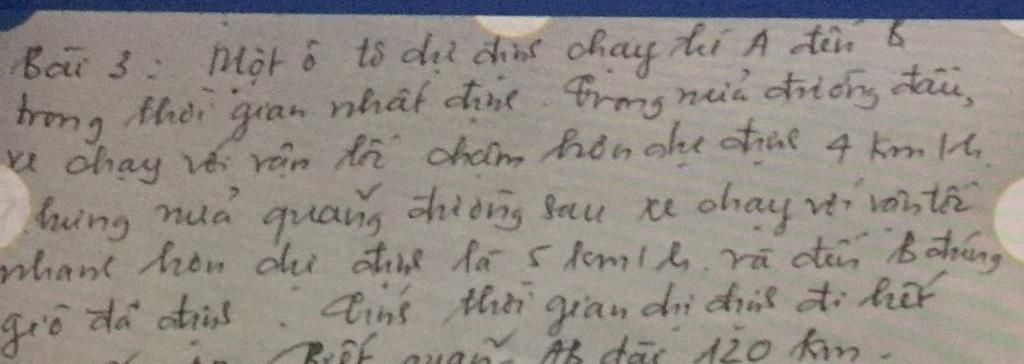 Bài 3: Một ô tô dự định chạy từ A đến B
trong thời gian nhất định. Trong nửa đường đầu,
xe chạy với vận tốc chậm hơn dự định 4 km/h.
Nưng nửa quãng đường sau xe chạy với vận tốc
nhanh hơn dự định là 5 km/h. và đến B đúng
giờ đã định. Tính thời gian dự định đi hết
Biết quãng AB dài 120 km.